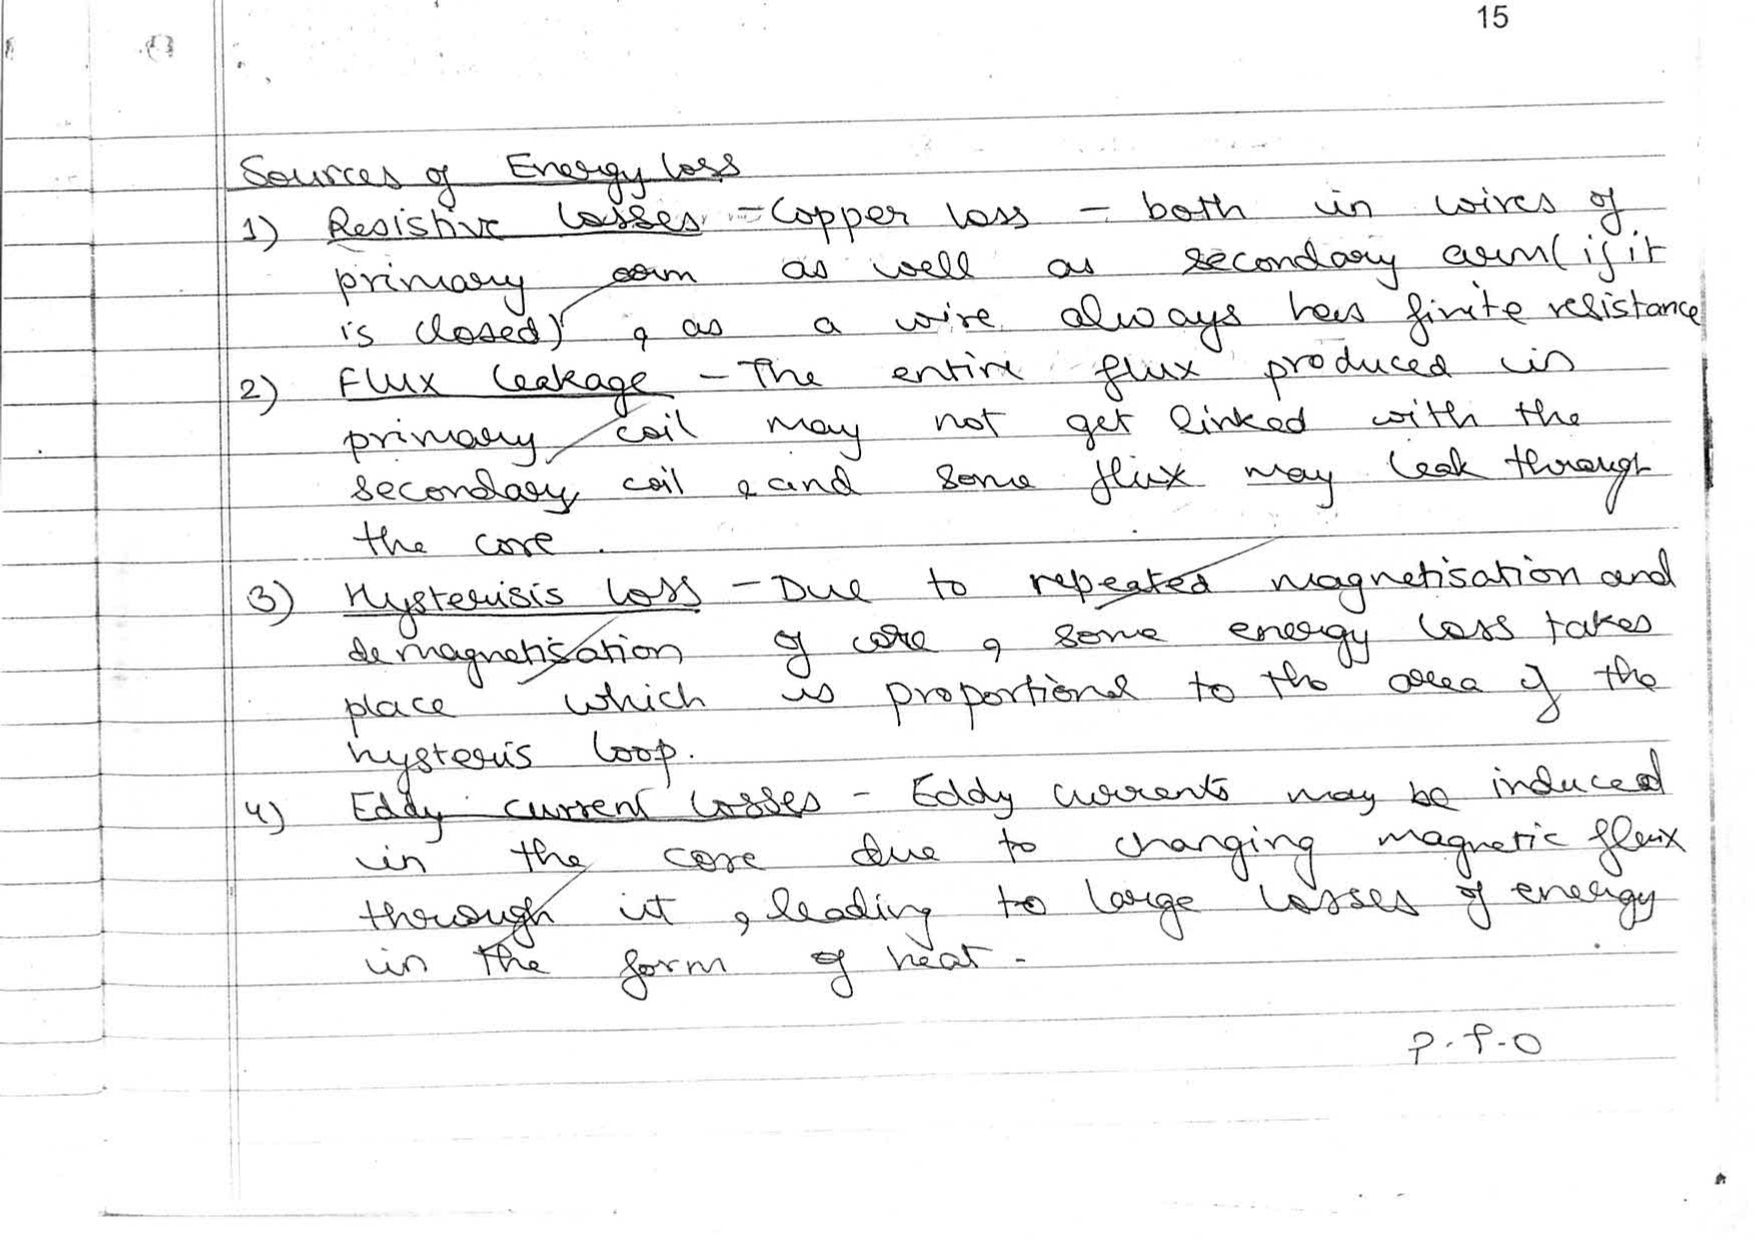 15
Sources of Energy loss
1) Resistive losses - Copper loss - both in wires of
primary arm as well as secondary arm (if it
is closed) , as a wire always has finite resistance
2) Flux leakage - The entire flux produced in
primary coil may not get linked with the
secondary coil , and some flux may leak through
the core .
3) Hysterisis loss - Due to repeated magnetisation and
demagnetisation of core , some energy loss takes
place which is proportional to the area of the
hysteris loop.
4) Eddy current losses - Eddy currents may be induced
in the core due to changing magnetic flux
through it , leading to large losses of energy
in the form of heat .
P.T.O